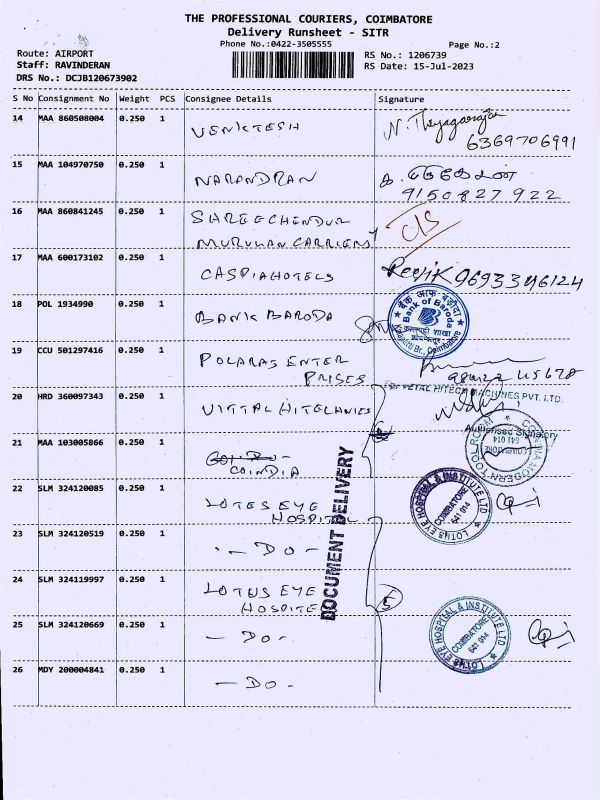 THE PROFESSIONAL COURIERS, COIMBATORE
Delivery Runsheet - SITR
Phone No.:0422-3505555
Page No.:2
Route: AIRPORT
Staff: RAVINDERAN
DRS No.: DCJB120673902
RS No.: 1206739
RS Date: 15-Jul-2023
S No Consignment No Weight PCS Consignee Details Signature
14 MAA 860508004 0.250 1 VENKTESH N. Thyagarajan
6369706991
15 MAA 104970750 0.250 1 NARANDRAN
9150827922
16 MAA 860841245 0.250 1 SHREECHENDUR
MURUHAN CARRIERS
17 MAA 600173102 0.250 1 CASPIAHOTELS 9693346124
18 POL 1934990 0.250 1 BANK BARODA
बैंक ऑफ बड़ौदा
Bank of Baroda
Coimbatore
19 CCU 501297416 0.250 1 POLARAS ENTER
PRISES
20 HRD 360097343 0.250 1 VITTAL HITECH
METAL HITECH MACHINES PVT. LTD.
Authorised Signatory
21 MAA 103005866 0.250 1
COINDIA
COINDIA MODERN TOOLROOM
COIMBATORE
641 014
22 SLM 324120085 0.250 1 LOTUS EYE
HOSPITAL
LOTUS EYE HOSPITAL & INSTITUTE LTD
COIMBATORE
641 014
DOCUMENT DELIVERY
23 SLM 324120519 0.250 1 - DO -
24 SLM 324119997 0.250 1 LOTUS EYE
HOSPITEL
5
25 SLM 324120669 0.250 1 - DO -
LOTUS EYE HOSPITAL & INSTITUTE LTD
COIMBATORE
641 014
26 MDY 200004841 0.250 1 - DO -